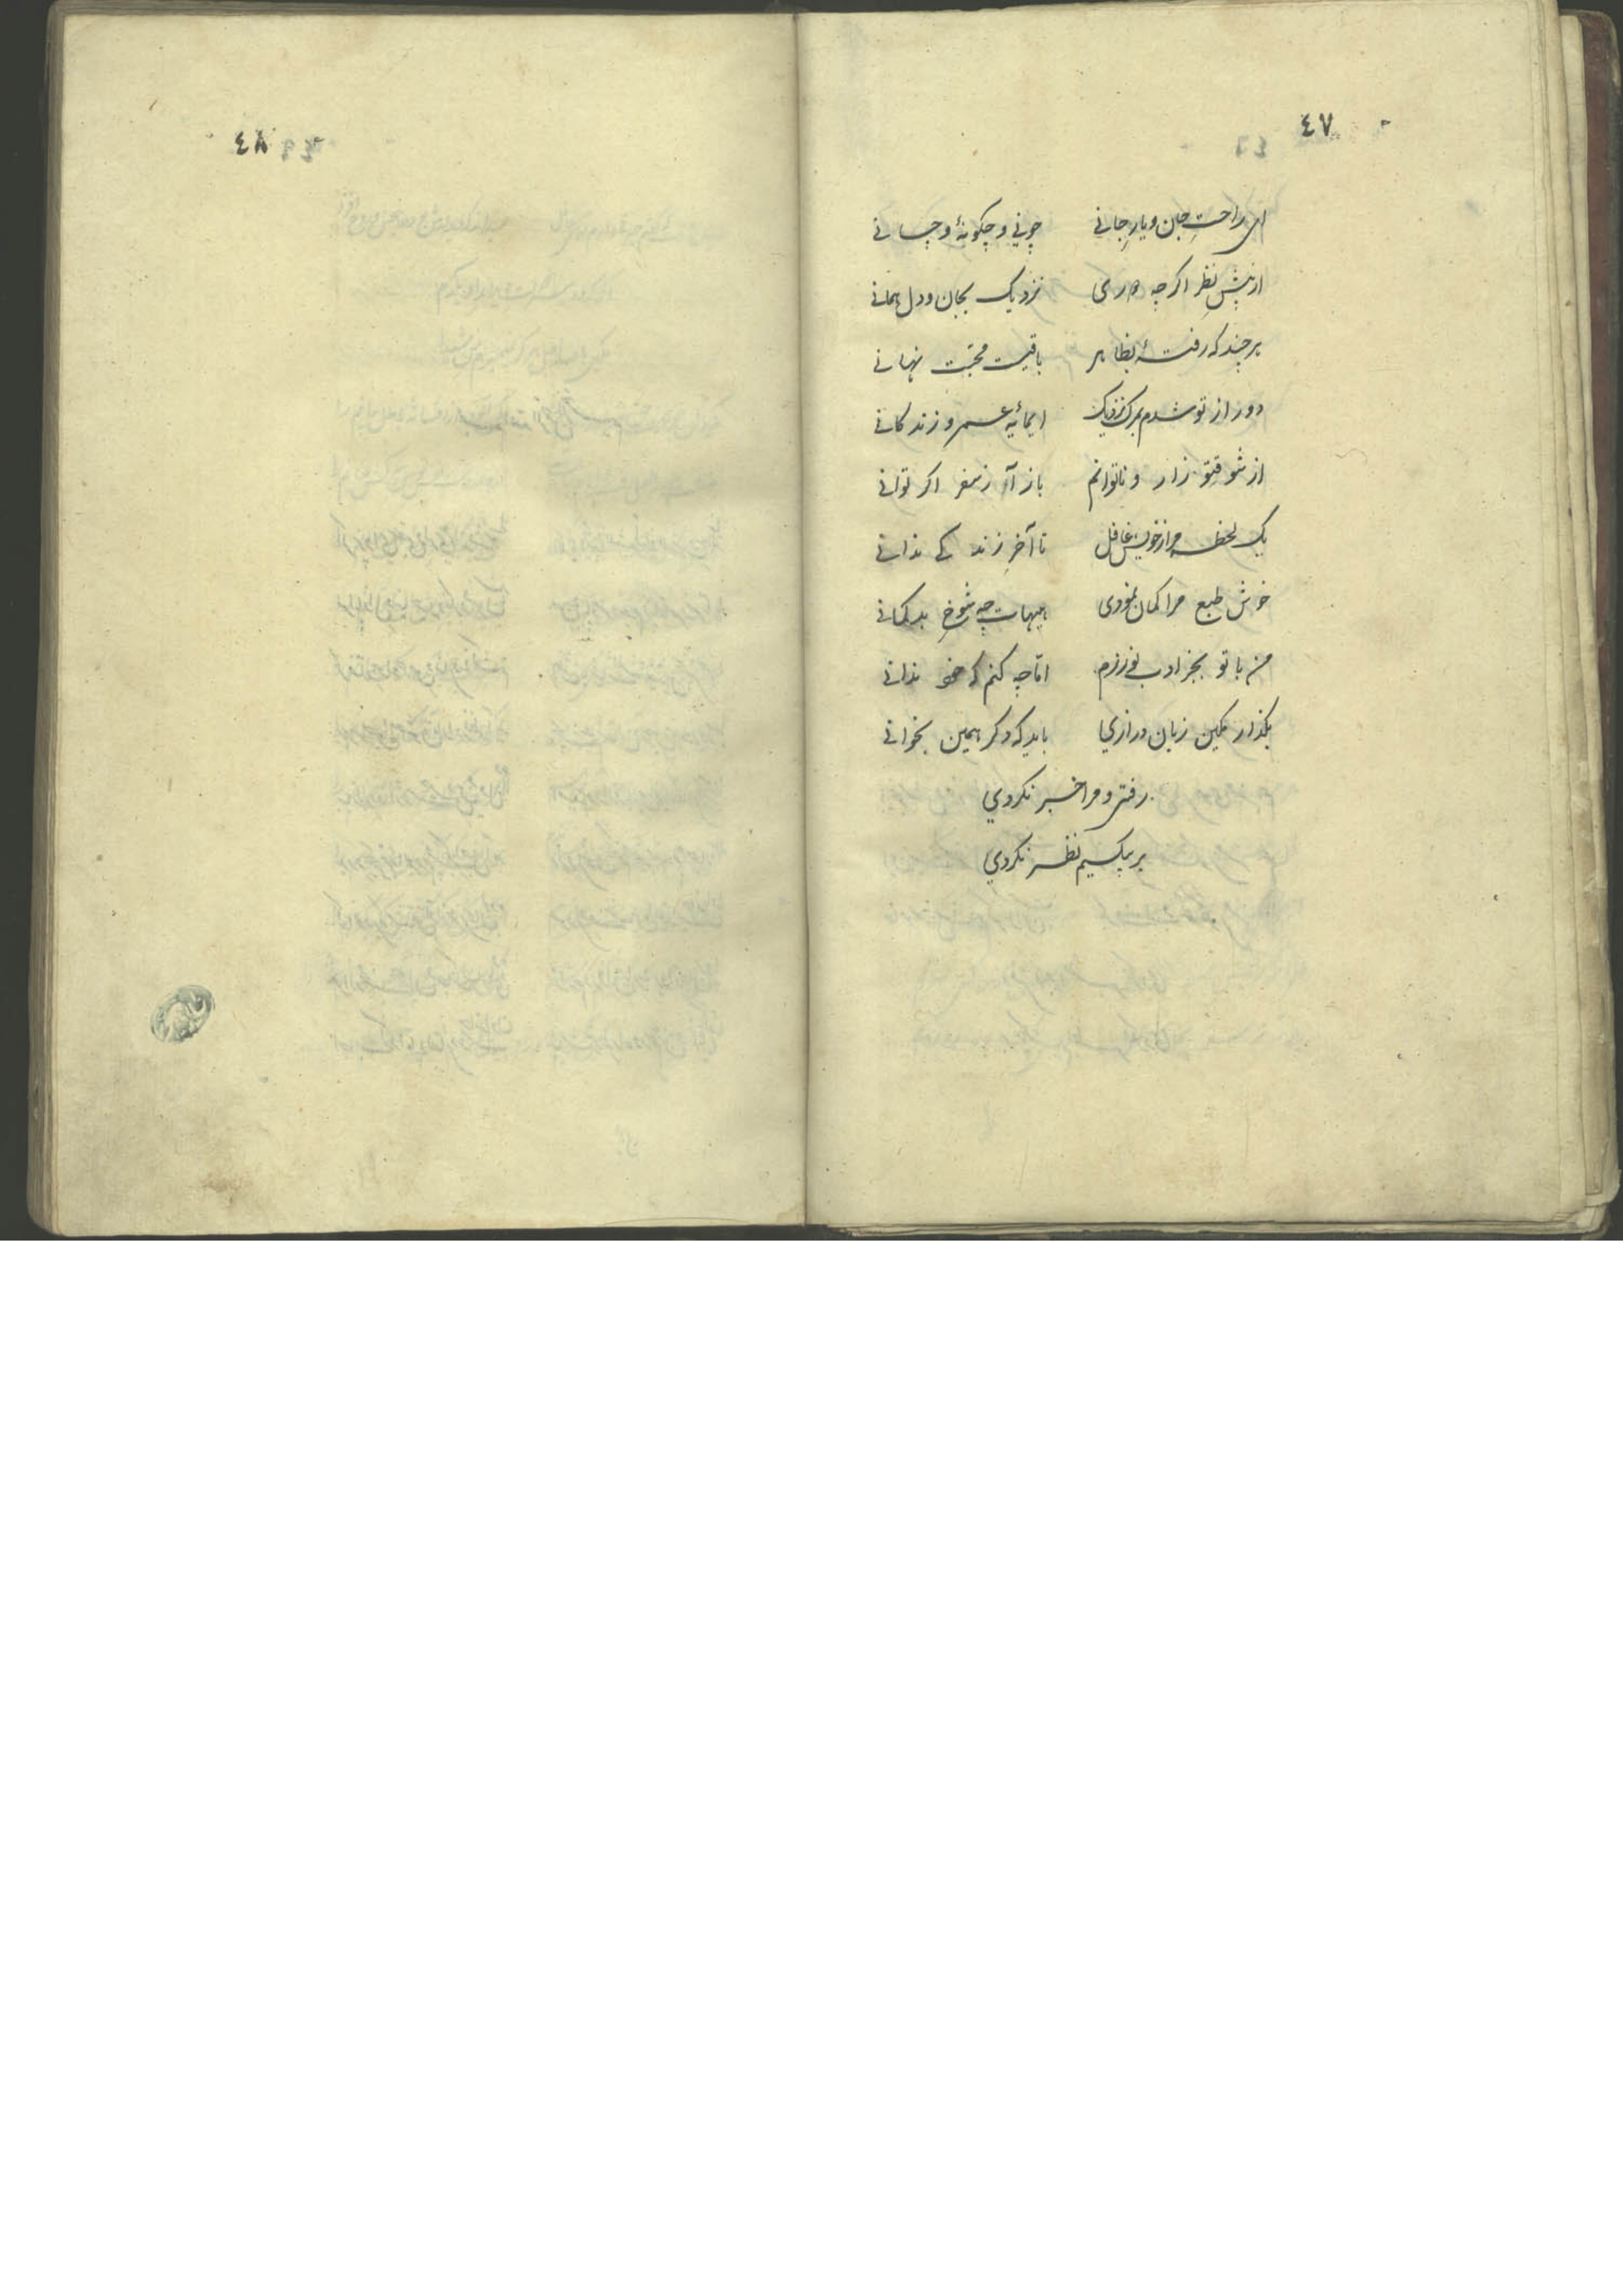 ٤٧
ای راحتِ جان و یارِ جانی چونی و چکونهٔ و چسانی
از پیشِ نظر اکر چه دوری نزدیک بجان و دل همانی
هر چند که رفتهٔ بظاهر باقیست محبّت نهانی
دور از تو شدم بمرک نزدیک ای مایهٔ عمر و زندکانی
از شوقِ تو زار و ناتوانم باز آ ز سفر اکر توانی
یک لحظه مرا ز خویش غافل تا آخرِ زندکی ندانی
خوش طبع مرا کمان نمودی هیهات چه شوخِ بدکمانی
من با تو بجز ادب نورزم امّا چه کنم که خو ندانی
بکذار مکین زبان درازی باید که دکر همین بخوانی
رفتی و مرا خبر نکردی
بر بیکسیم نظر نکردی
٤٨